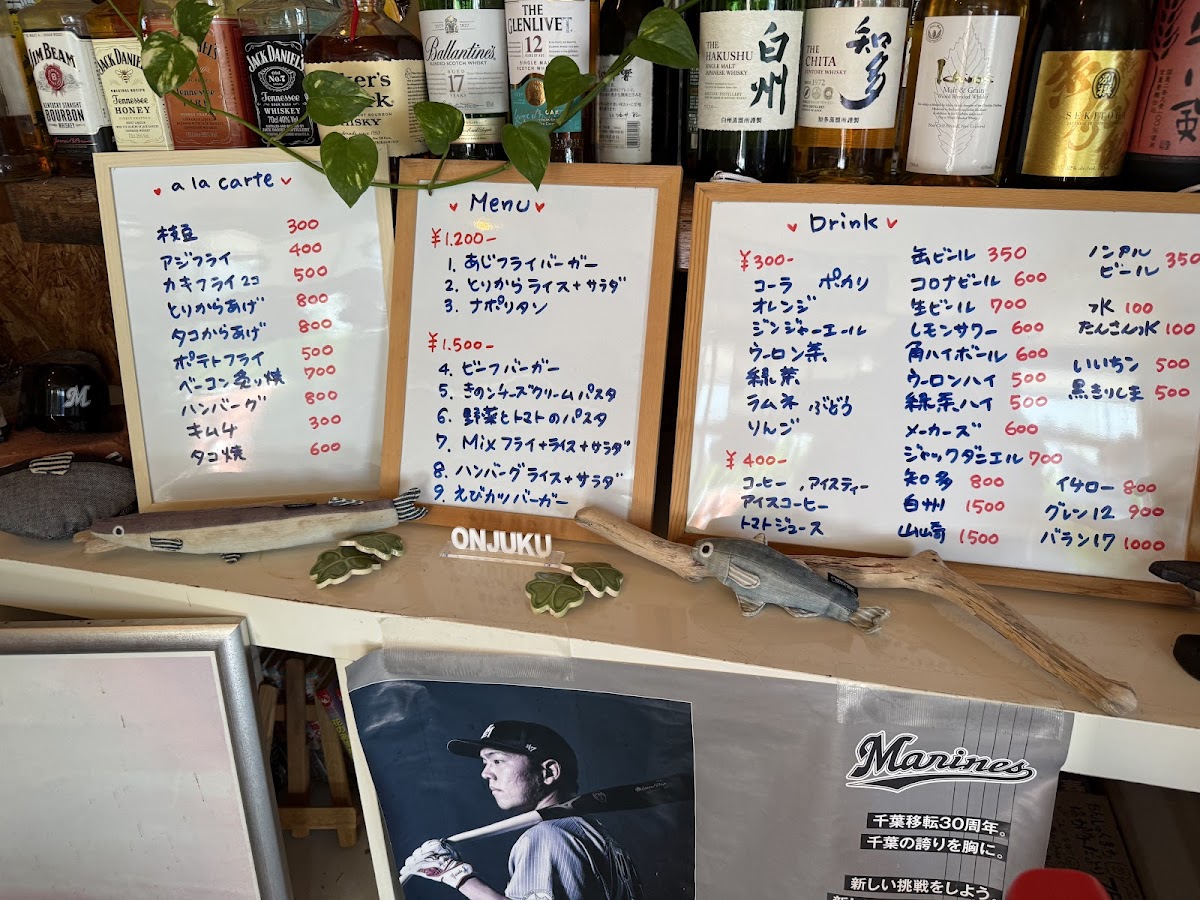 JIM BEAM
KENTUCKY STRAIGHT
BOURBON
WHISKEY
JACK DANIEL'S
Tennessee
HONEY
Tennessee
JACK DANIEL'S
Old No.7
Tennessee
WHISKEY
WHISKY
Ballantine's
AGED
17
YEARS
THE
GLENLIVET
12
THE
HAKUSHU
SINGLE MALT
JAPANESE WHISKY
白州
THE
CHITA
SUNTORY WHISKY
1972
知多
Ichiro's
Malt & Grain
SEKITOBA
a la carte
枝豆 300
アジフライ 400
カキフライ2コ 500
とりからあげ 800
タコからあげ 800
ポテトフライ 500
ベーコン炙り焼 700
ハンバーグ 800
キムチ 300
タコ焼 600
Menu
¥1.200-
1. あじフライバーガー
2. とりからライス+サラダ
3. ナポリタン
¥1.500-
4. ビーフバーガー
5. きのこチーズクリームパスタ
6. 野菜とトマトのパスタ
7. Mixフライ+ライス+サラダ
8. ハンバーグライス+サラダ
9. えびカツバーガー
Drink
¥300-
コーラ ポカリ
オレンジ
ジンジャーエール
ウーロン茶
緑茶
ラムネ ぶどう
りんご
¥400-
コーヒー , アイスティー
アイスコーヒー
トマトジュース
缶ビール 350
コロナビール 600
生ビール 700
レモンサワー 600
角ハイボール 600
ウーロンハイ 500
緑茶ハイ 500
メーカーズ 600
ジャックダニエル 700
知多 800
白州 1500
山崎 1500
ノンアル
ビール 350
水 100
たんさん水 100
いいちこ 500
黒きりしま 500
イチロー 800
グレン12 900
バラン17 1000
M
ONJUKU
Marines
千葉移転30周年。
千葉の誇りを胸に。
新しい挑戦をしよう。